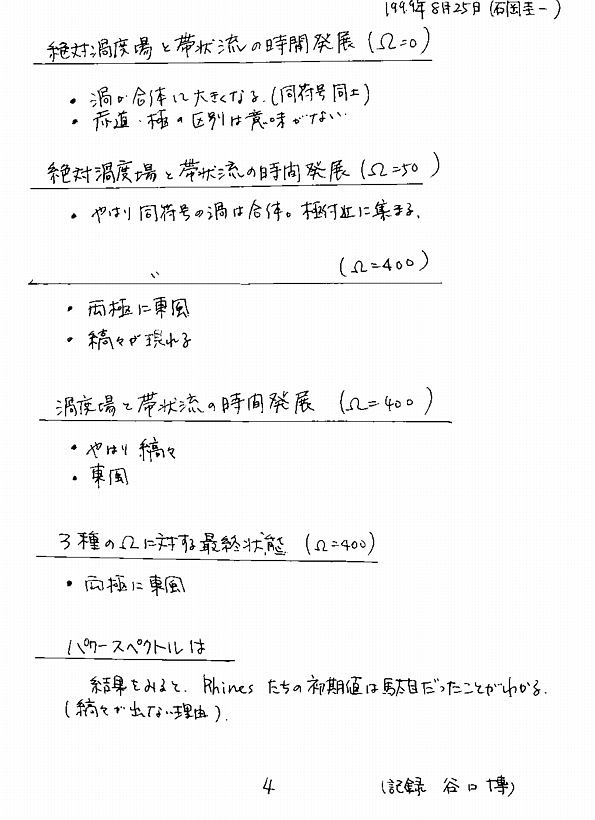 1999年8月25日(石岡圭一)
絶対渦度場と帯状流の時間発展(Ω=0)
・渦が合体して大きくなる.(同符号同士)
・赤道・極の区別は意味がない
絶対渦度場と帯状流の時間発展(Ω=50)
・やはり同符号の渦は合体。極付近に集まる.
〃 (Ω=400)
・両極に東風
・縞々が現れる
渦度場と帯状流の時間発展 (Ω=400)
・やはり縞々
・東風
3種のΩに対する最終状態 (Ω=400)
・両極に東風
パワースペクトルは
結果をみると. Rhines たちの初期値は駄目だったことがわかる.
(縞々が出ない理由).
4 (記録 谷口 博)